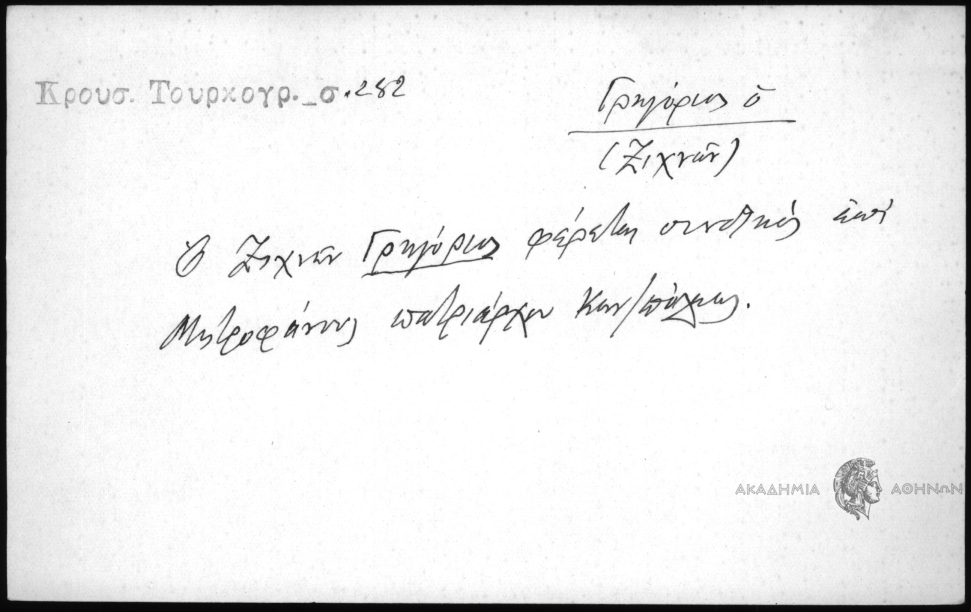 Κρουσ. Τουρκογρ. _σ.282
Γρηγόριος ὁ
(Ζιχνῶν)
Ὁ Ζιχνῶν Γρηγόριος φέρεται συνοδικός ἐπί
Μητροφάνους πατριάρχου Κων/πόλεως.
ΑΚΑΔΗΜΙΑ ΑΘΗΝΩΝ